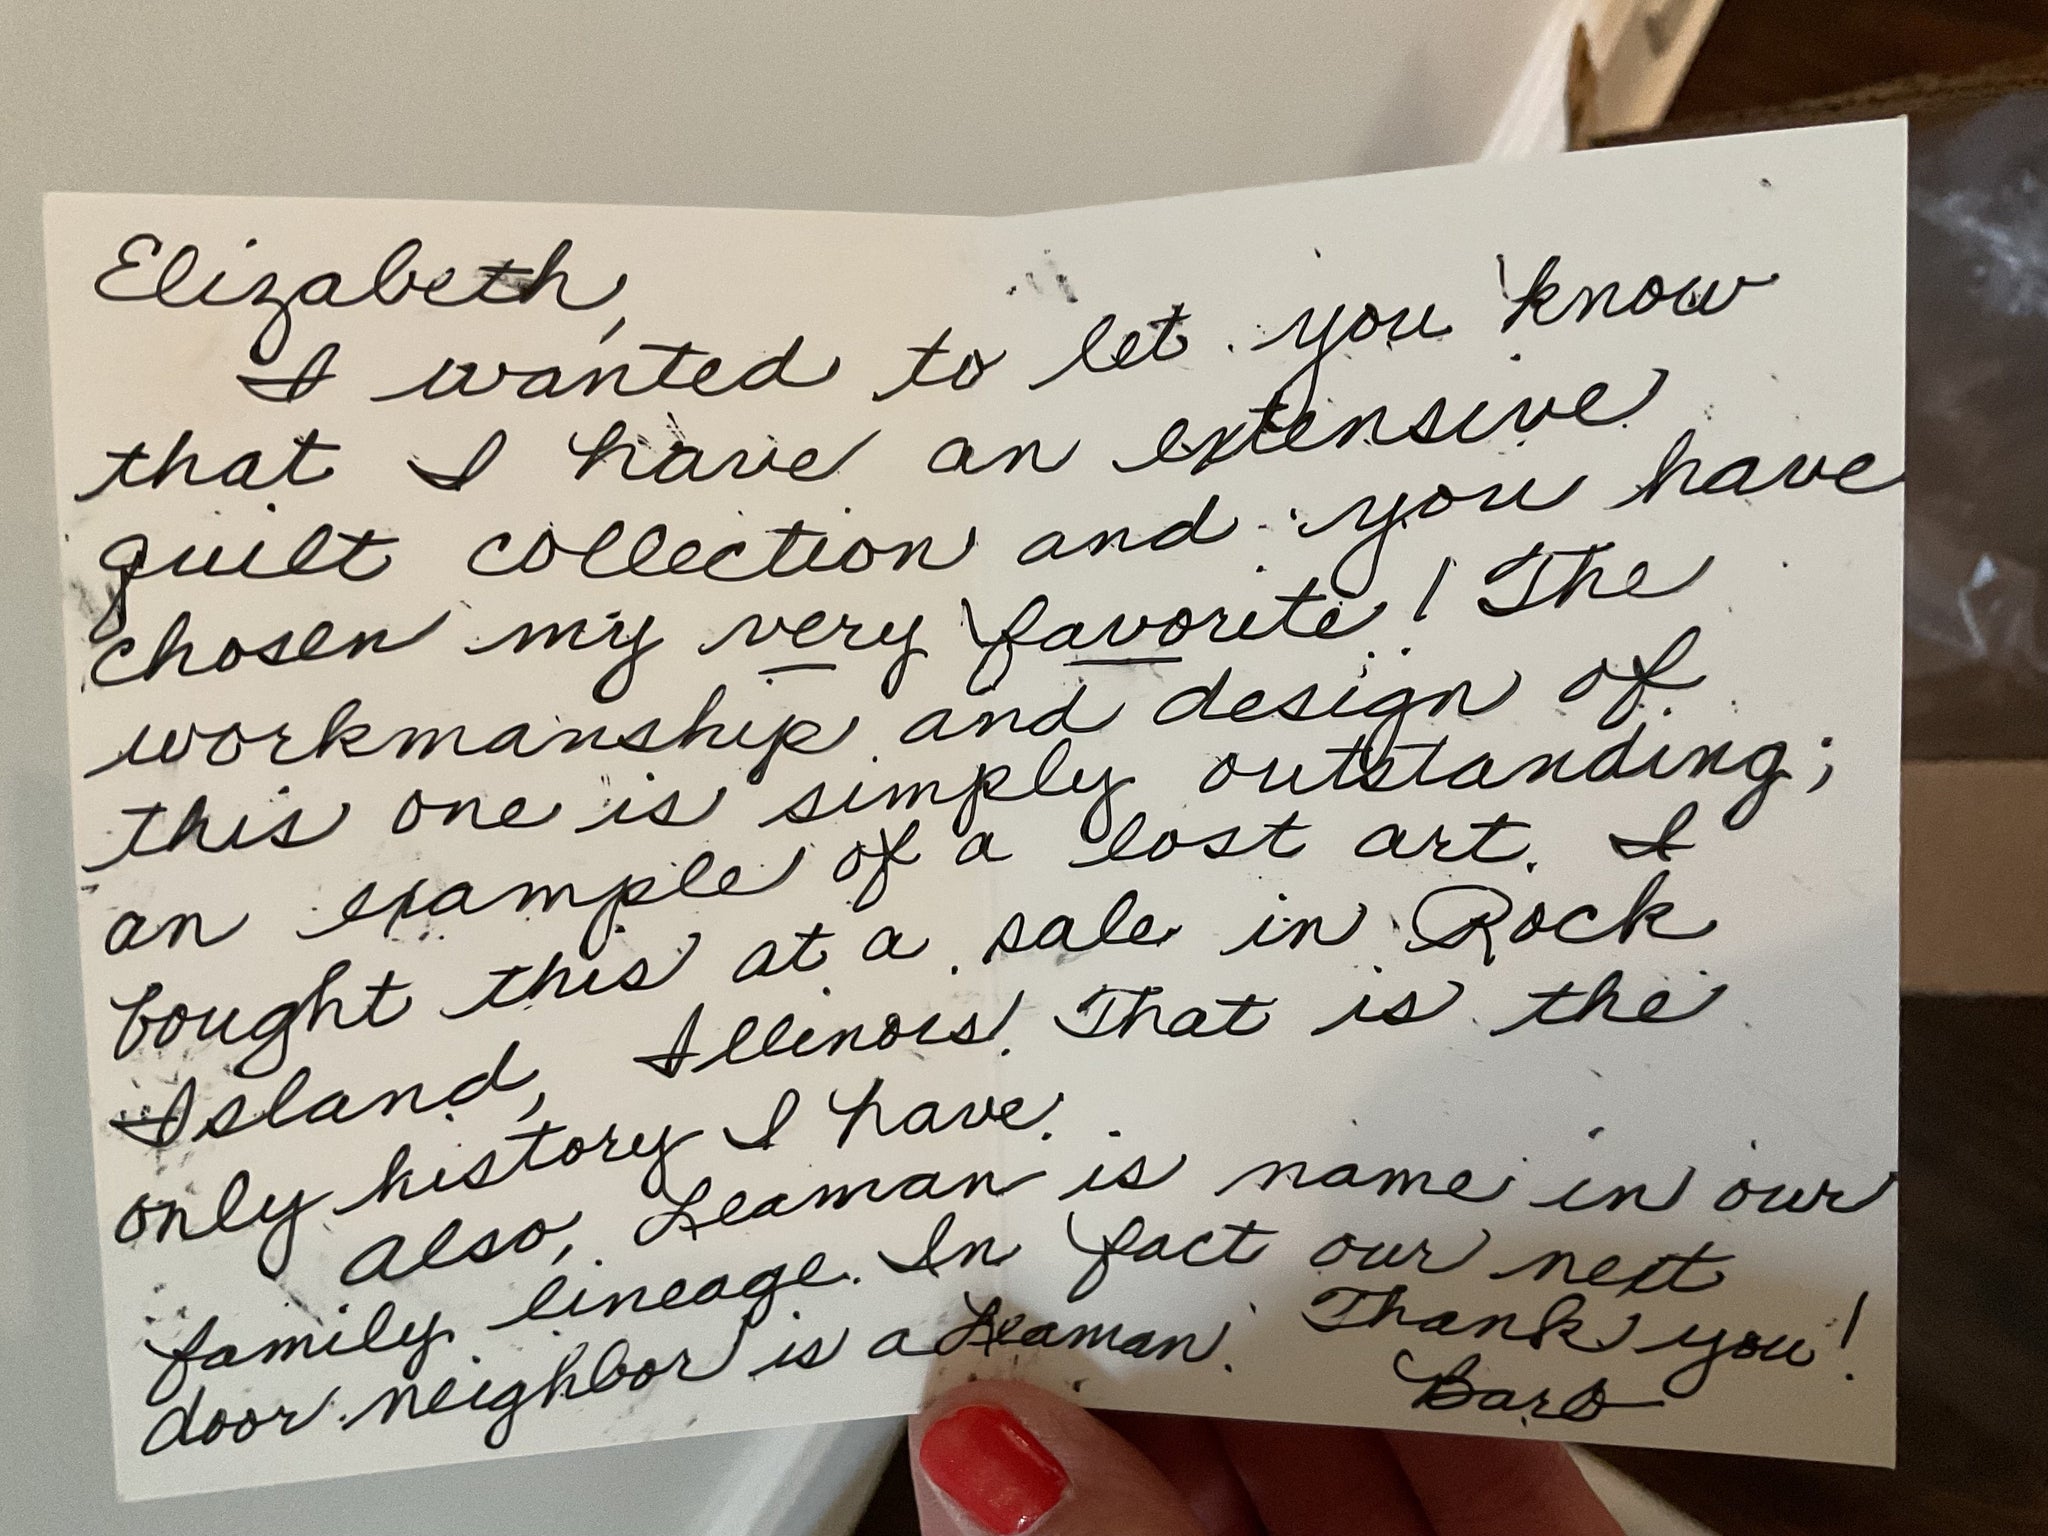 Elizabeth,
I wanted to let you know
that I have an extensive
quilt collection and you have
chosen my very favorite! The
workmanship and design of
this one is simply outstanding;
an example of a lost art. I
bought this at a sale in Rock
Island, Illinois! That is the
only history I have.
Also, Leaman is name in our
family lineage. In fact our next
door neighbor is a Leaman. Thank you!
Barb